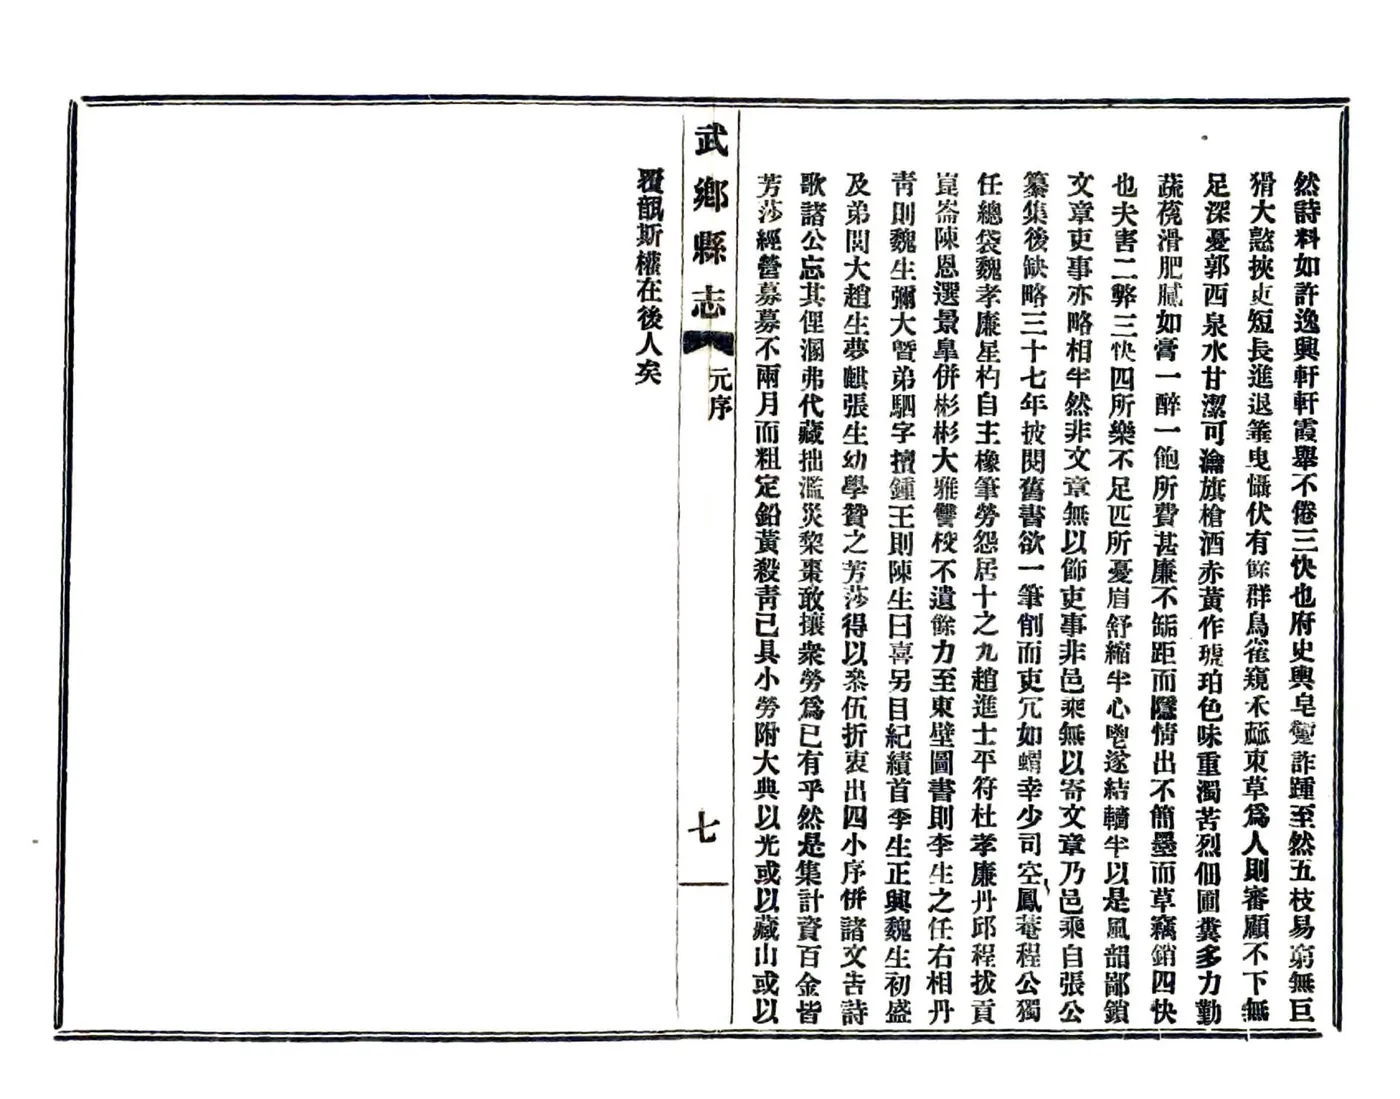 然詩料如許逸興軒軒霞舉不倦三快也府史輿皂詐踵至然五枝易窮無巨
猾大憝挾吏短長進退箠曳懾伏有餘群鳥雀窺禾蘇束草為人則審顧不下無
足深憂郭西泉水甘潔可瀹旗槍酒赤黃作琥珀色味重濁苦烈佃圃糞多力勤
蔬滑肥膩如膏一醉一飽所費甚廉不鲘距而隱情出不簡墨而草竊銷四快
也夫害二弊三快四所樂不足匹所憂眉舒縮半心鬯遂結轖半以是風韶鄙鎖
文章吏事亦略相半然非文章無以飾吏事非邑乘無以寄文章乃邑乘自張公
纂集後缺略三十七年披閱舊書欲一筆削而吏冗如蝟幸少司空鳳菴程公獨
任總袋魏孝廉星杓自主橡筆勞怨居十之九趙進士平符杜孝廉丹邱程拔貢
崑崙陳恩選景臯併彬彬大雅讐校不遺餘力至東壁圖書則李生之任右相丹
青則魏生彌大暨弟駟字擅鍾王則陳生曰喜另目紀績首李生正興魏生初盛
及弟閔大趙生夢麒張生幼學贊之芳莎得以叅伍折衷出四小序併諸文告詩
歌諸公忘其俚溷弗代藏拙濫災棃棗敢攘衆勞爲已有乎然是集計資百金皆
芳莎經營募募不兩月而粗定鉛黃殺靑已具小勞附大典以光或以藏山或以
武鄉縣志
元序
七
覆瓿斯權在後人矣